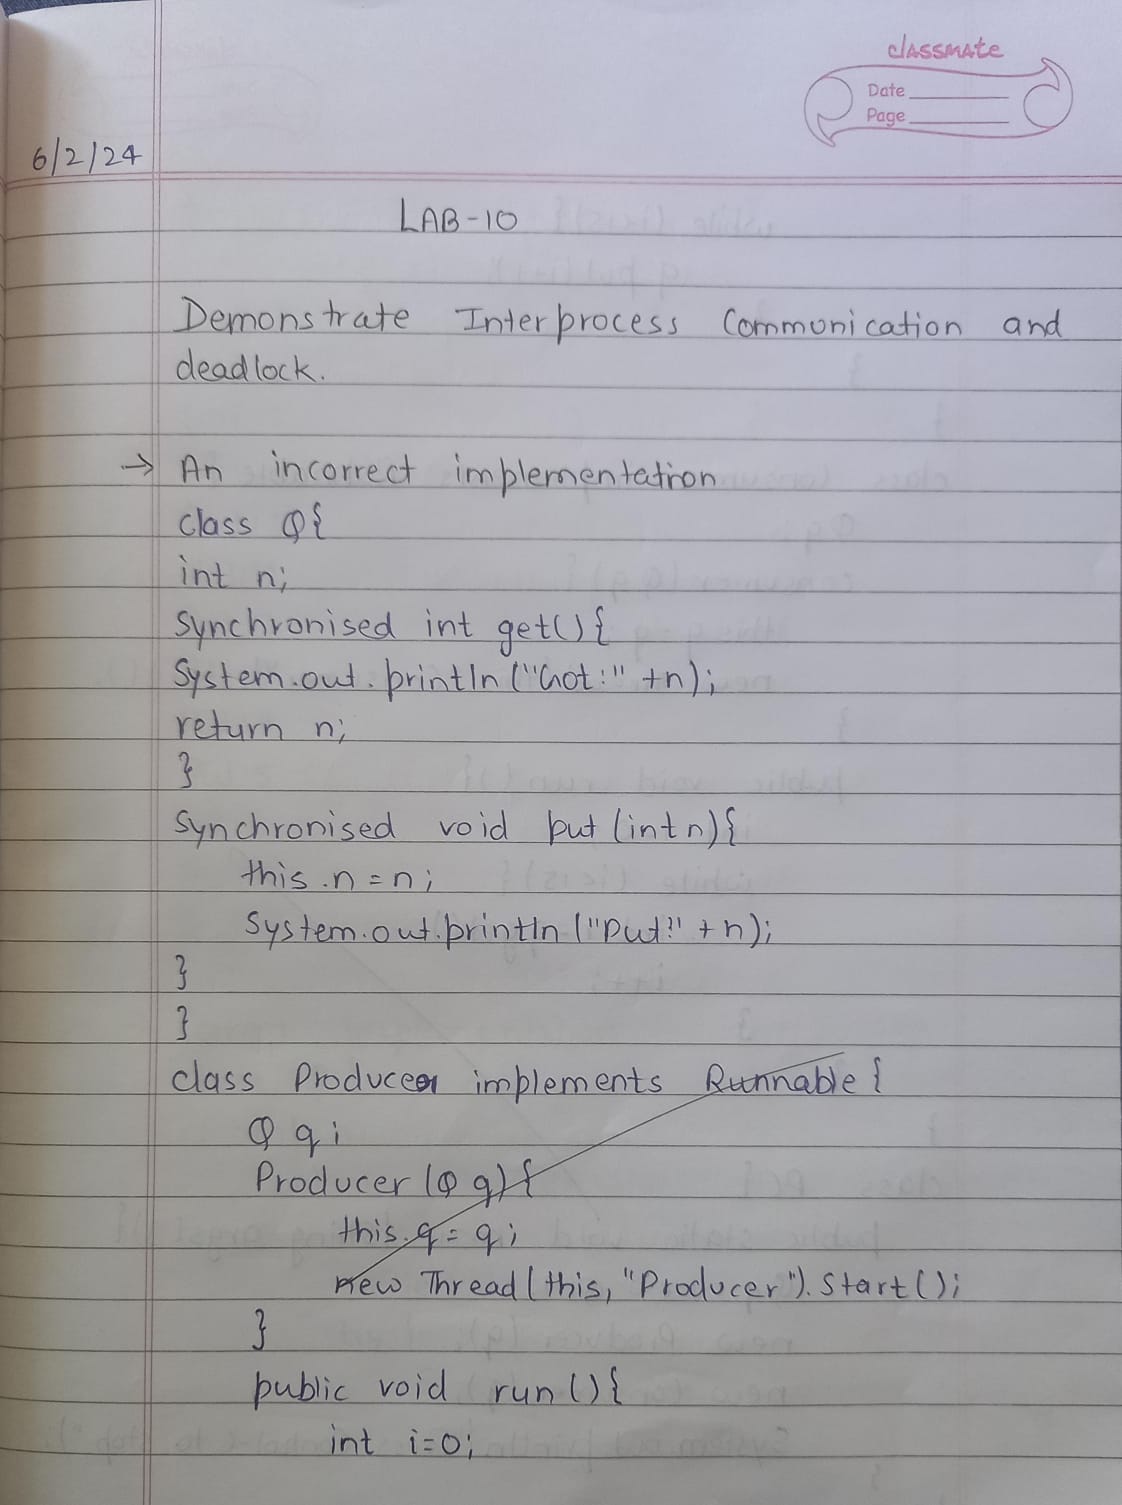 classmate
Date
Page
6/2/24
LAB-10
Demonstrate Interprocess Communication and
deadlock.
→ An incorrect implementation
class Q{
int n;
Synchronised int get(){
System.out.println("Got:" +n);
return n;
}
Synchronised void put(int n){
this.n=n;
System.out.println("Put:" +n);
}
}
class Producer implements Runnable{
Q q;
Producer(Q q){
this.q=q;
new Thread(this, "Producer").start();
}
public void run(){
int i=0;